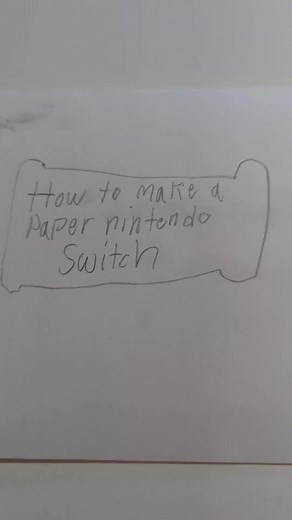 How to make a
paper nintendo
Switch